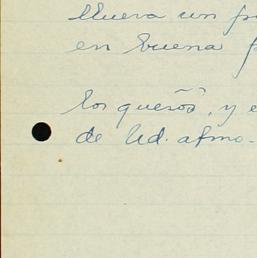 llueva un
en buena
los quesos, y
de Ud. afmo.